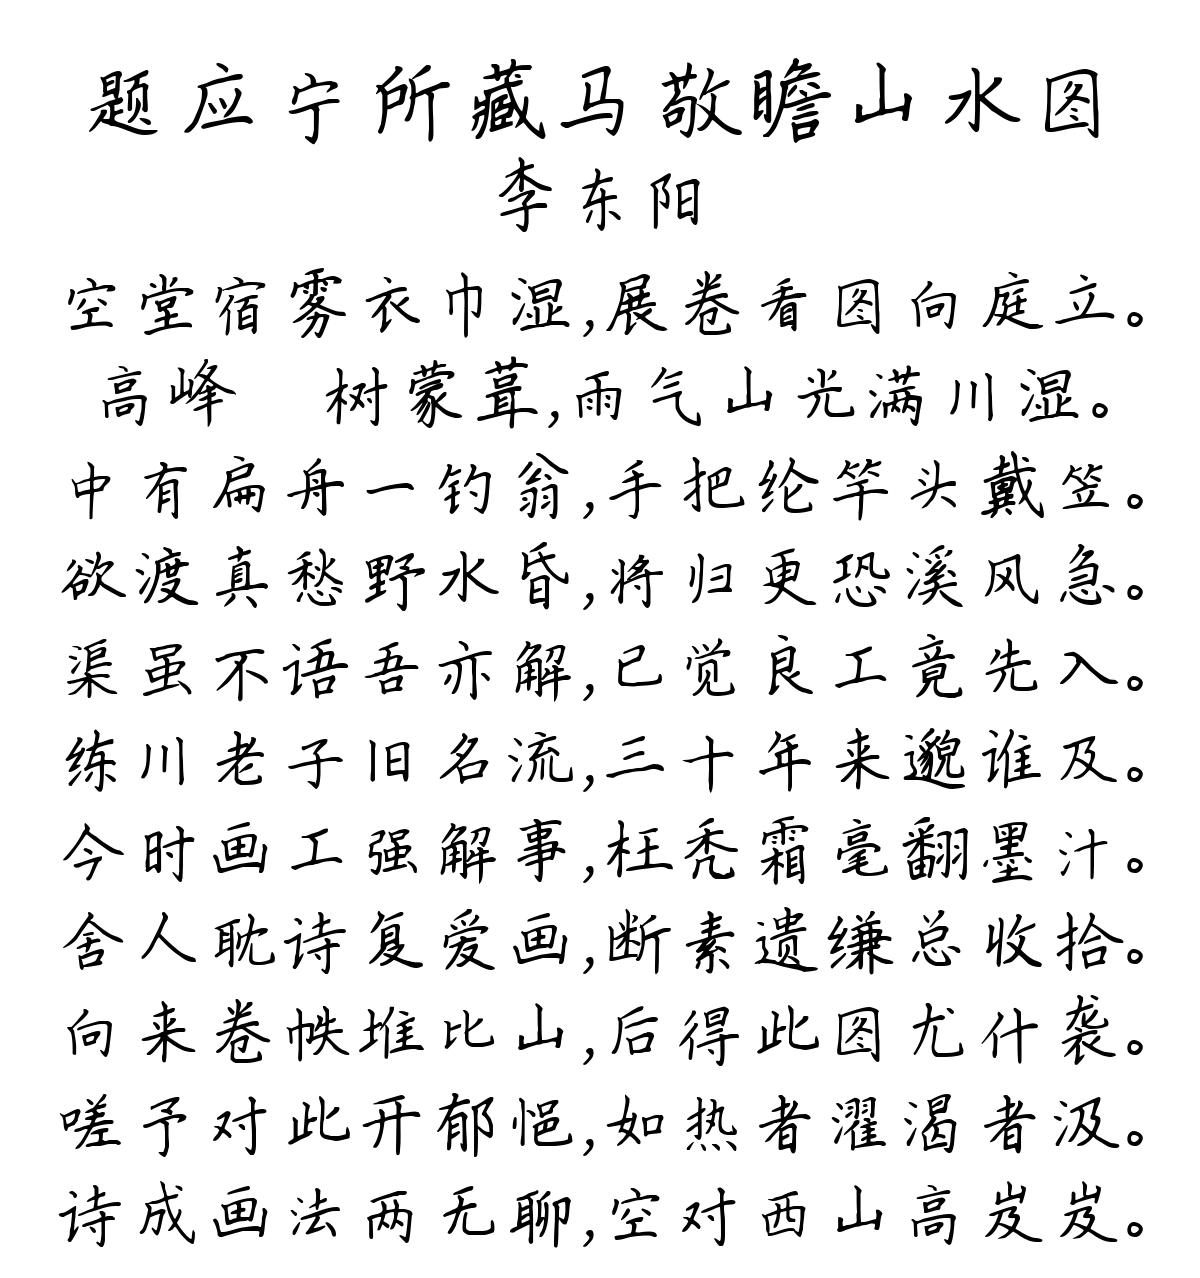 题应宁所藏马敬瞻山水图
李东阳
空堂宿雾衣巾湿,展卷看图向庭立。
高峰 树蒙茸,雨气山光满川湿。
中有扁舟一钓翁,手把纶竿头戴笠。
欲渡真愁野水昏,将归更恐溪风急。
渠虽不语吾亦解,已觉良工竟先入。
练川老子旧名流,三十年来邈谁及。
今时画工强解事,枉秃霜毫翻墨汁。
舍人耽诗复爱画,断素遗缣总收拾。
向来卷帙堆比山,后得此图尤什袭。
嗟予对此开郁悒,如热者濯渴者汲。
诗成画法两无聊,空对西山高岌岌。